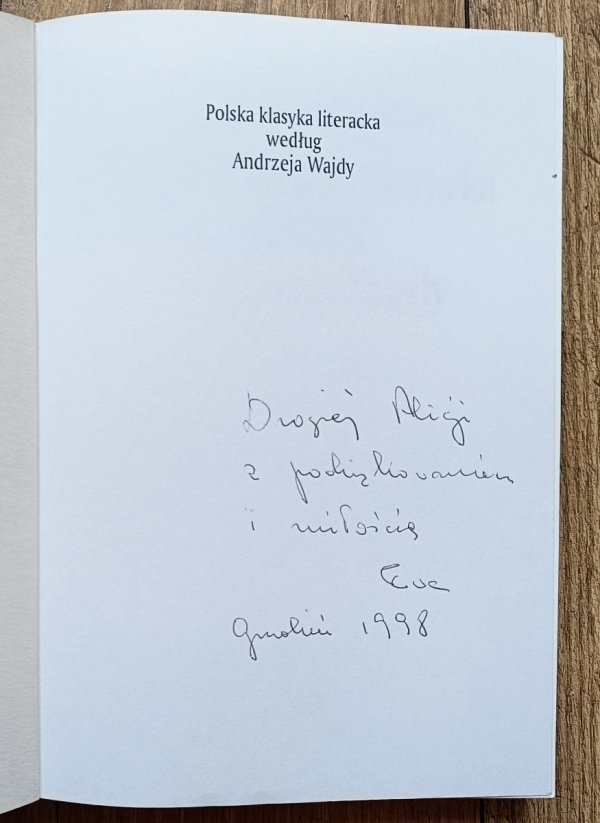 Polska klasyka literacka
według
Andrzeja Wajdy
Drogiej Alicji
z podziękowaniem
i miłością
Ewa
Grudzień 1998